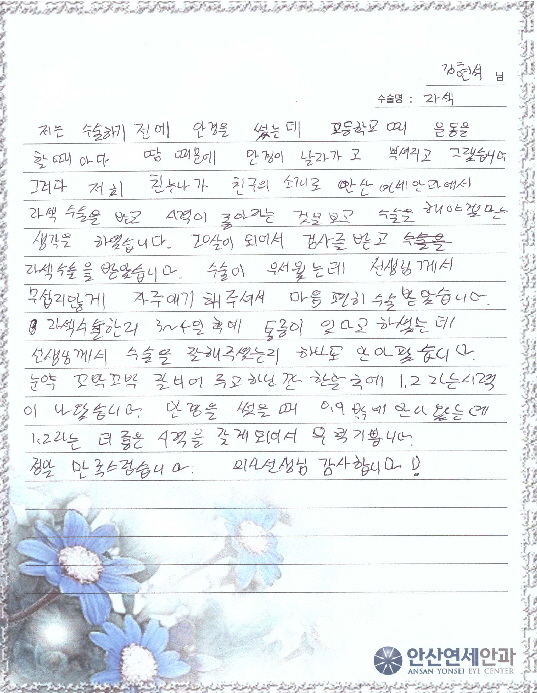 김현석 님
수술명 : 라섹
저는 수술하기 전에 안경을 썼는데 고등학교 때 운동을
할때 마다 땀 때문에 안경이 날라가고 부셔지고 그랬습니다
그러다 저희 친누나가 친구의 소개로 안산 연세안과에서
라섹수술을 받고 시력이 좋아지는 것을보고 수술을 해야겠다는
생각을 하였습니다. 20살이 되어서 검사를 받고 수술을
라섹수술을 받았습니다. 수술이 무서웠는데 선생님께서
무섭지않게 자주얘기 해주셔서 마음 편히 수술 받았습니다.
라섹수술한뒤 3~4일 후에 통증이 있다고 하셨는데
선생님께서 수술을 잘해주셨는지 하나도 안아팠습니다.
눈약 꼬박꼬박 잘넣어 주고 하니깐 한달 후에 1.2 라는시력
이 나왔습니다. 안경을 썼을 때 0.9 밖에 안나왔는데
1.2라는 더 좋은 시력을 갖게되어서 무척기쁩니다.
정말 만족스럽습니다. 의사선생님 감사합니다!
안산연세안과
ANSAN YONSEI EYE CENTER